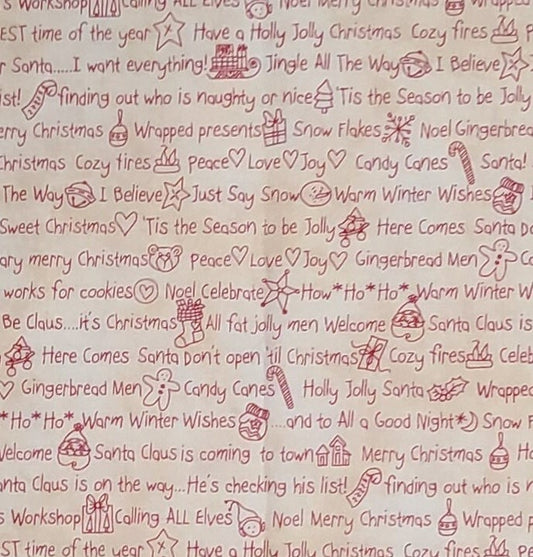 s Workshop Calling ALL Elves Noel Merry Christmas Wrapped
EST time of the year Have a Holly Jolly Christmas Cozy fires
r Santa.....I want everything! Jingle All The Way I Believe
ist! finding out who is naughty or nice 'Tis the Season to be Jolly
erry Christmas Wrapped presents Snow Flakes Noel Gingerbrea
hristmas Cozy fires Peace Love Joy Candy Canes Santa!
The Way I Believe Just Say Snow Warm Winter Wishes
Sweet Christmas 'Tis the Season to be Jolly Here Comes Santa Do
ary merry Christmas Peace Love Joy Gingerbread Men Ca
works for cookies Noel Celebrate How*Ho*Ho* Warm Winter W
Be Claus....it's Christmas All fat jolly men Welcome Santa Claus is
Here Comes Santa Don't open 'til Christmas Cozy fires Celeb
Gingerbread Men Candy Canes Holly Jolly Santa Wrapped
*Ho*Ho* Warm Winter Wishes ....and to All a Good Night* Snow F
Welcome Santa Claus is coming to town Merry Christmas Ho
anta Claus is on the way...He's checking his list! finding out who is n
s Workshop Calling ALL Elves Noel Merry Christmas Wrapped p
ST time of the year Have a Holly Jolly Christmas Cozy fires Pe